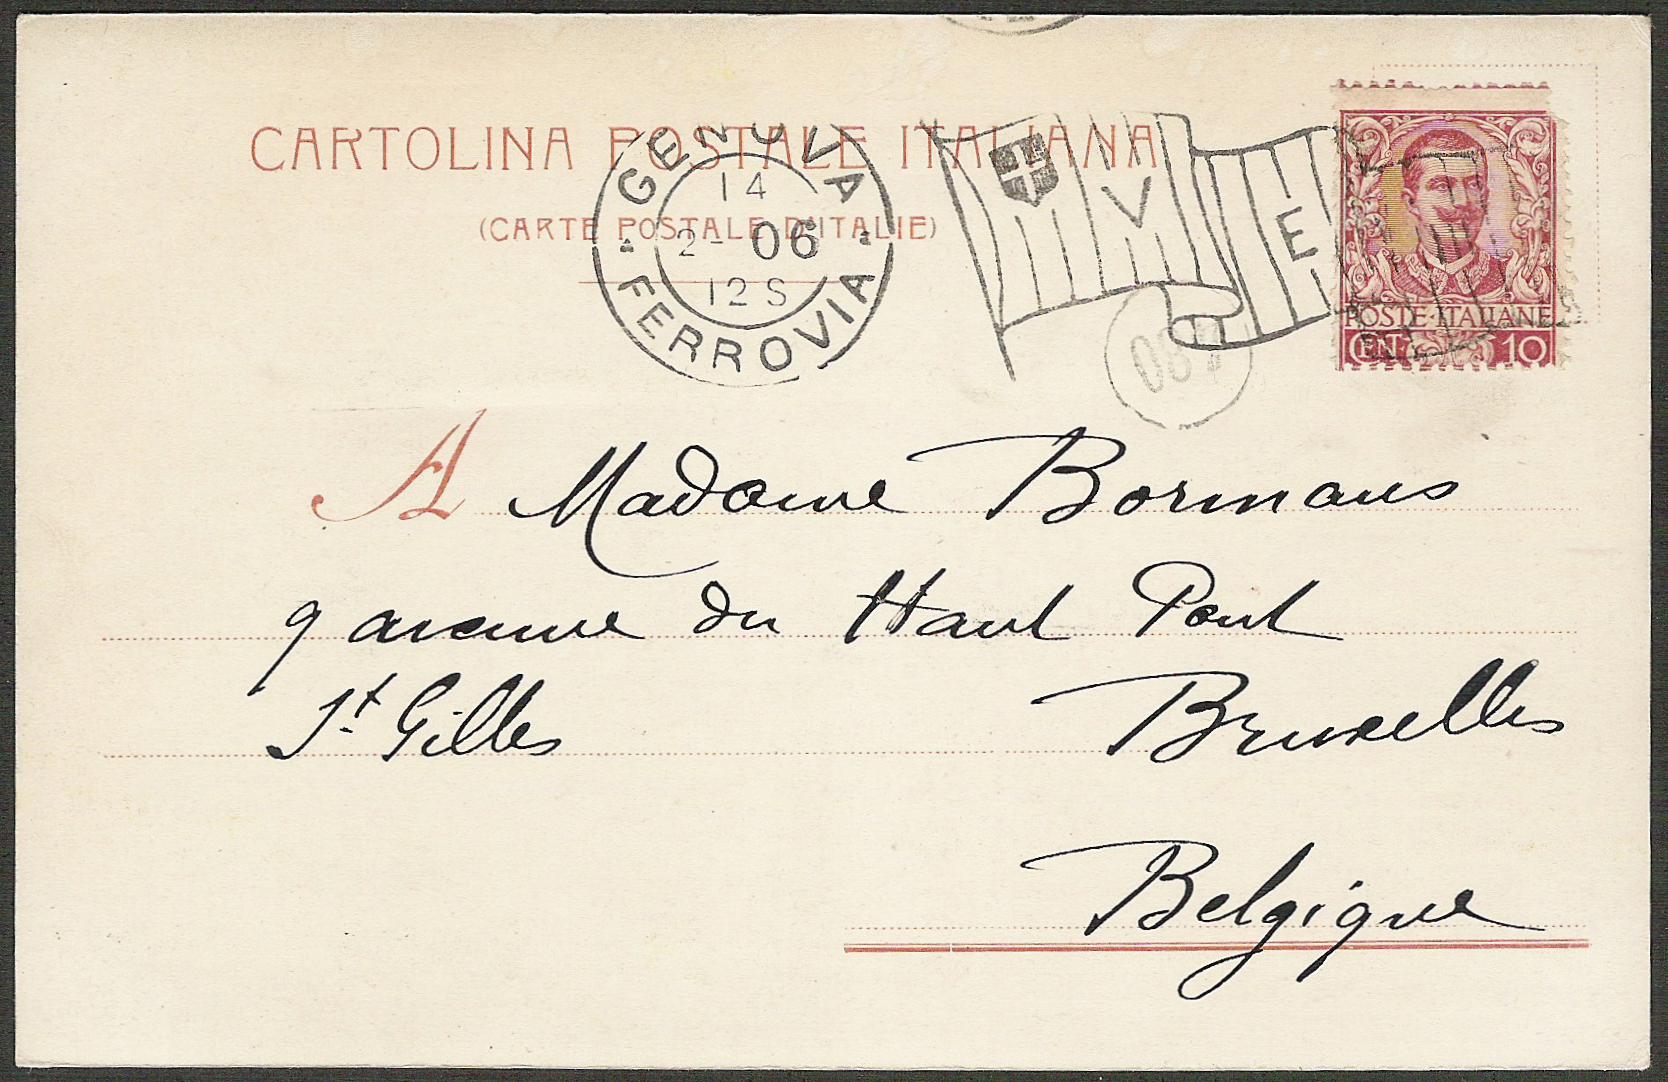 CARTOLINA POSTALE ITALIANA
(CARTE POSTALE D'ITALIE)
GENOVA
14
2- 06
12 S
FERROVIA
V E
POSTE·ITALIANE
CEN. 10
A Madame Bormans
9 avenue du Haut Pont
St Gilles Bruxelles
Belgique